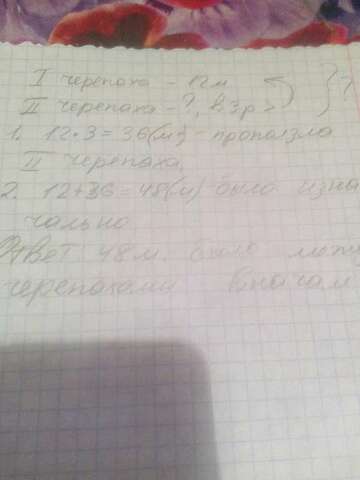 I черепаха - 12м
II черепаха - ?, в 3р > } ?
1. 12·3=36(м) - проползла
II черепаха.
2. 12+36=48(м) было изна
чально
Ответ 48м. было между
черепахами вначале